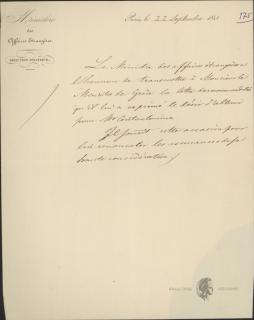 Ministère
des
Affaires Étrangères
DIRECTION POLITIQUE
Paris, le 22 Septembre
175
Le Ministre des affaires étrangères
a l'honneur de transmettre à Monsieur le
Ministre de Grèce la lettre de recommandation
qu'il lui a exprimé le désir d'obtenir
pour Mr
Il saisit cette occasion pour
lui renouveler les assurances de sa
haute considération